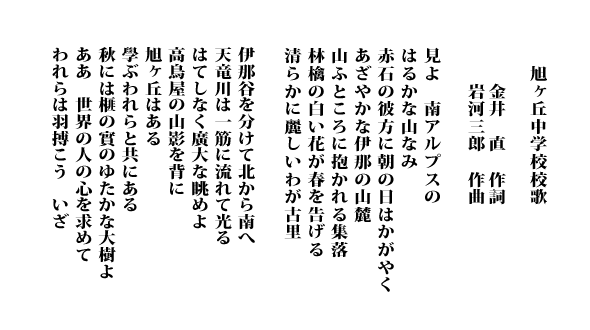 旭ヶ丘中学校校歌
金井　直　作詞
岩河三郎　作曲
見よ　南アルプスの
はるかな山なみ
赤石の彼方に朝の日はかがやく
あざやかな伊那の山麓
山ふところに抱かれる集落
林檎の白い花が春を告げる
清らかに麗しいわが古里
伊那谷を分けて北から南へ
天竜川は一筋に流れて光る
はてしなく廣大な眺めよ
高鳥屋の山影を背に
旭ヶ丘はある
學ぶわれらと共にある
秋には榧の實のゆたかな大樹よ
ああ　世界の人の心を求めて
われらは羽搏こう　いざ